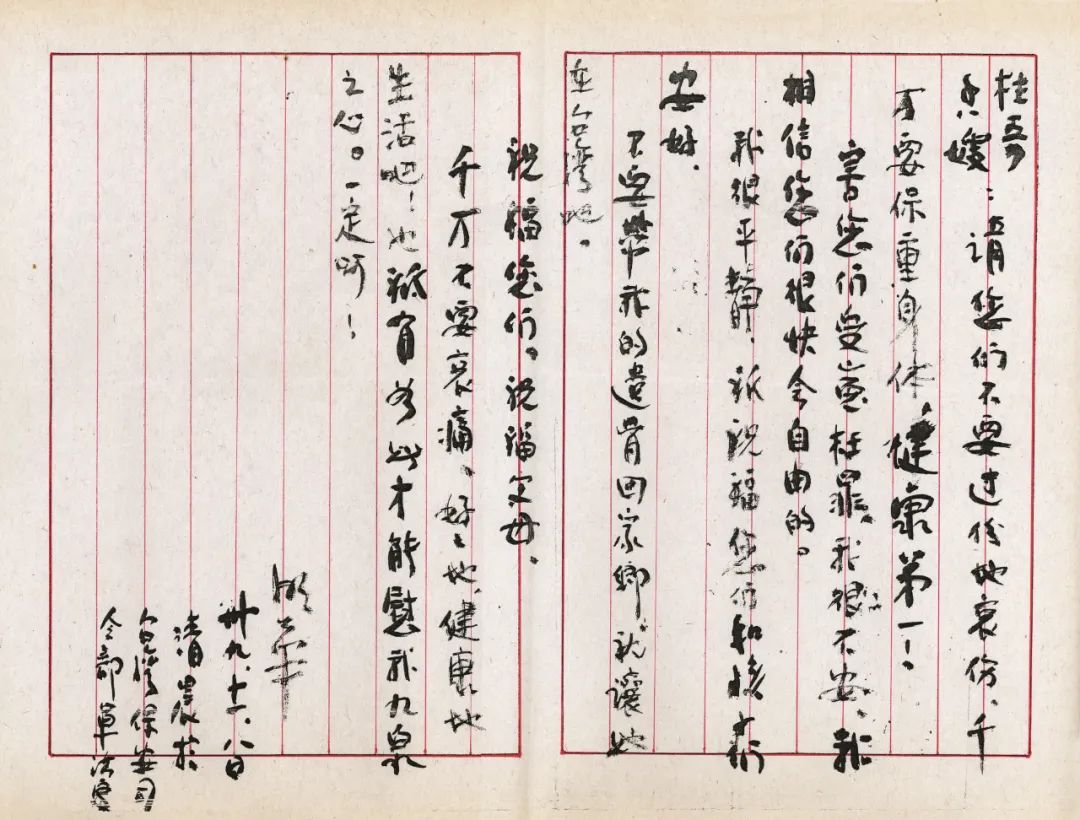 桂
嫂:請您们不要过份地哀伤,千
万要保重身体,健康第一!
害您们受寃枉罪,我很不安,我
相信您们很快会自由的。
我很平靜,我祝福您们和孩子们
安好.
不要带我的遺骨回家鄉,就讓她
在台湾吧。
祝福您们。祝福父母.
千万不要哀痛、好好地、健康地
生活吧!也祗有如此才能慰我九泉
之心。一定啊!
卅九.十一.八日
清晨於
台湾保安司
令部軍法處